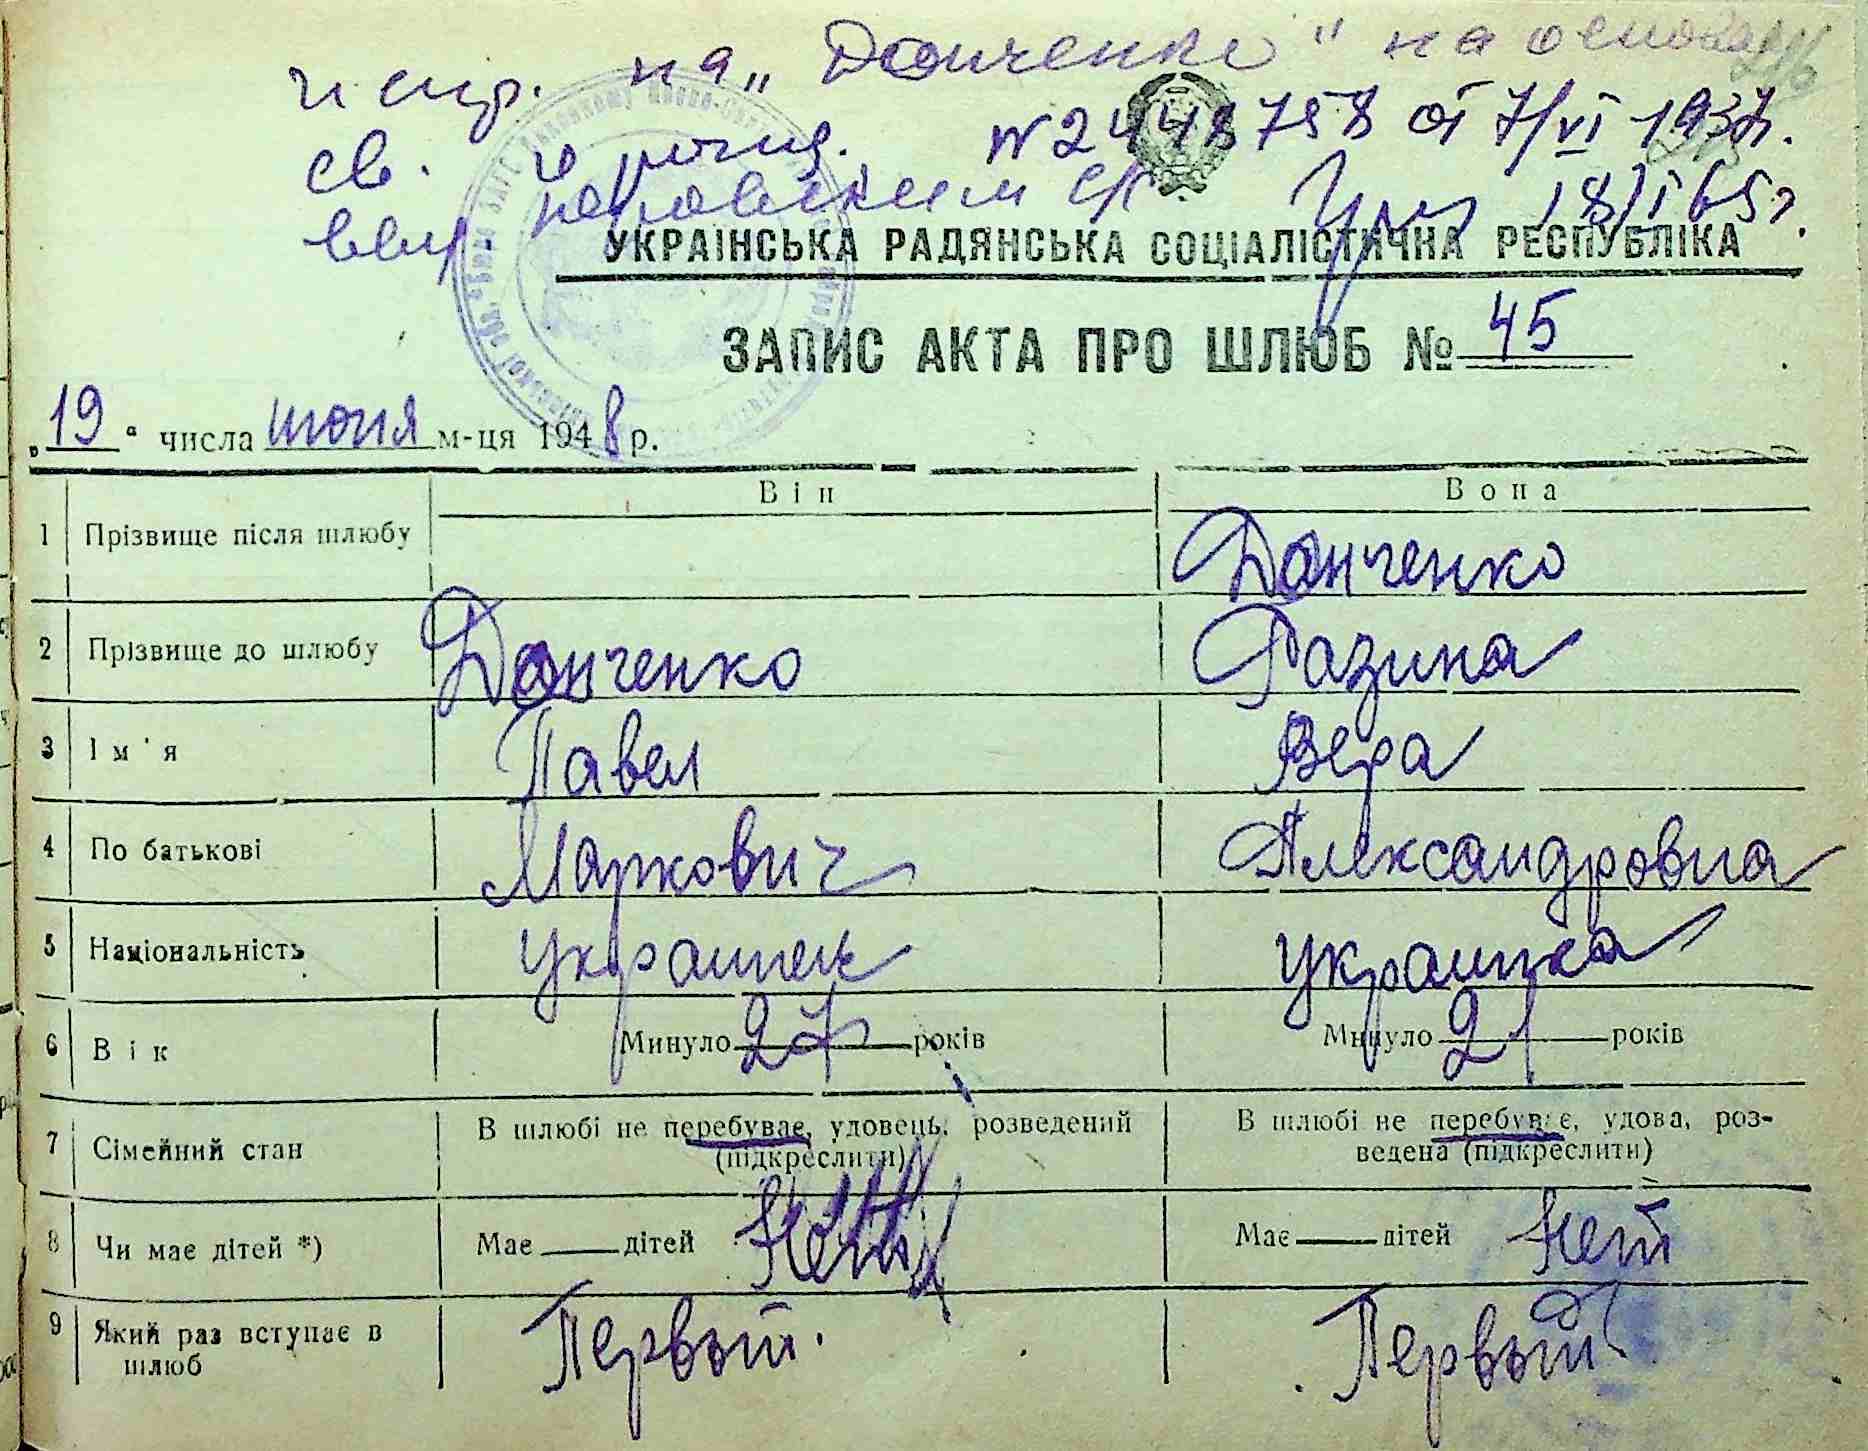 испр. на „Донченко" на основа
св. о рожд. № 2448758 от 7/VI 1937г.
18/I 65г.
УКРАЇНСЬКА РАДЯНСЬКА СОЦІАЛІСТИЧНА РЕСПУБЛІКА
ЗАПИС АКТА ПРО ШЛЮБ № 45
„19“ числа июня м-ця 1948 р.
Він Вона
1 Прізвище після шлюбу Донченко
2 Прізвище до шлюбу Донченко Разина
3 Ім'я Павел Вера
4 По батькові Маркович Александровна
5 Національність украинец украинка
6 Вік Минуло 27 років Минуло 21 років
7 Сімейний стан В шлюбі не перебуває, удовець, розведений (підкреслити) В шлюбі не перебуває, удова, роз-
ведена (підкреслити)
8 Чи має дітей *) Має дітей Нет Має дітей Нет
9 Який раз вступає в Первый. Первый
шлюб